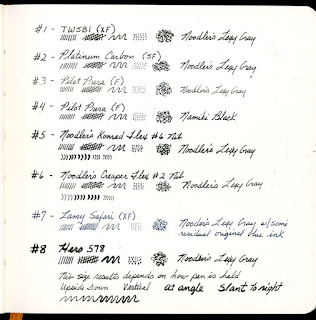 #1 - TWSBI (XF)
Noodler's Lexy Gray
#2 - Platinum Carbon (SF)
Noodler's Lexy Gray
#3 - Pilot Prera (F)
Noodler's Lexy Gray
#4 - Pilot Prera (F)
Namiki Black
#5 - Noodler's Konrad Flex #6 Nib
Noodler's Lexy Gray
#6 - Noodler's Creaper Flex #2 Nib
Noodler's Lexy Gray
#7 - Lamy Safari (XF)
Noodler's Lexy Gray w/some
residual original blue ink
#8 Hero 578
Noodler's Lexy Gray
Nib size results depends on how pen is held
Upside Down Vertical at angle Slant to right